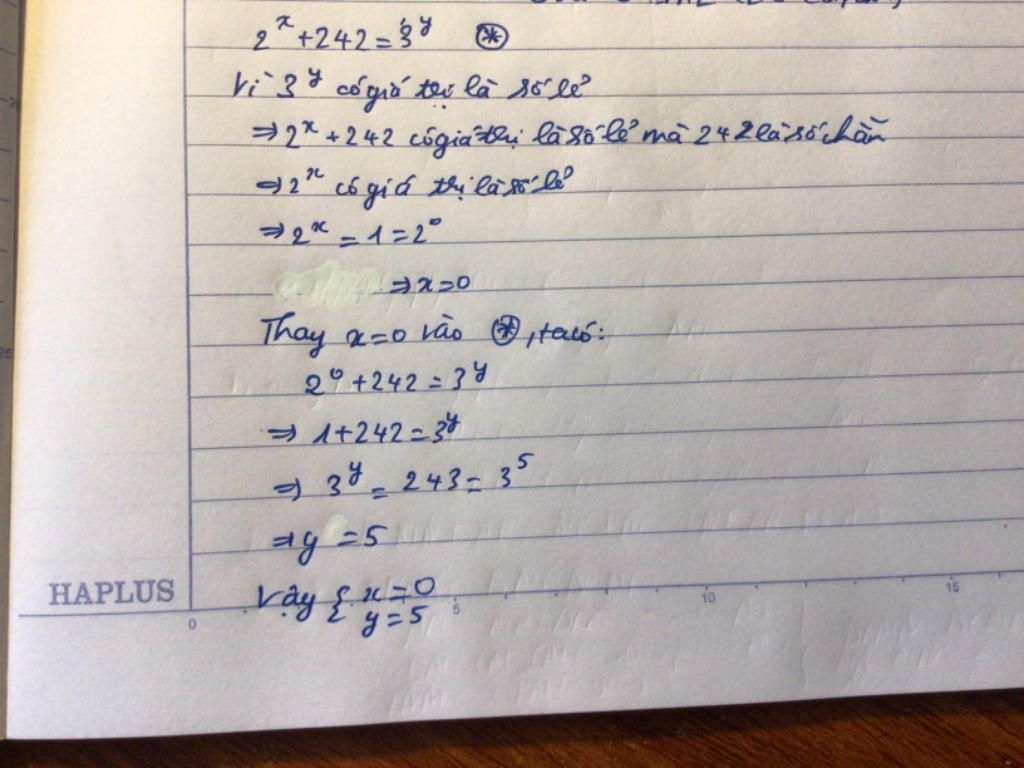 2^x + 242 = 3^y ⊛
Vì 3^y có giá trị là số lẻ
⇒ 2^x + 242 có giá trị là số lẻ mà 242 là số chẵn
⇒ 2^x có giá trị là số lẻ
⇒ 2^x = 1 = 2^0
⇒ x = 0
Thay x = 0 vào ⊛, ta có:
2^0 + 242 = 3^y
⇒ 1 + 242 = 3^y
⇒ 3^y = 243 = 3^5
⇒ y = 5
Vậy { x = 0
y = 5
HAPLUS
0 5 10 15
25